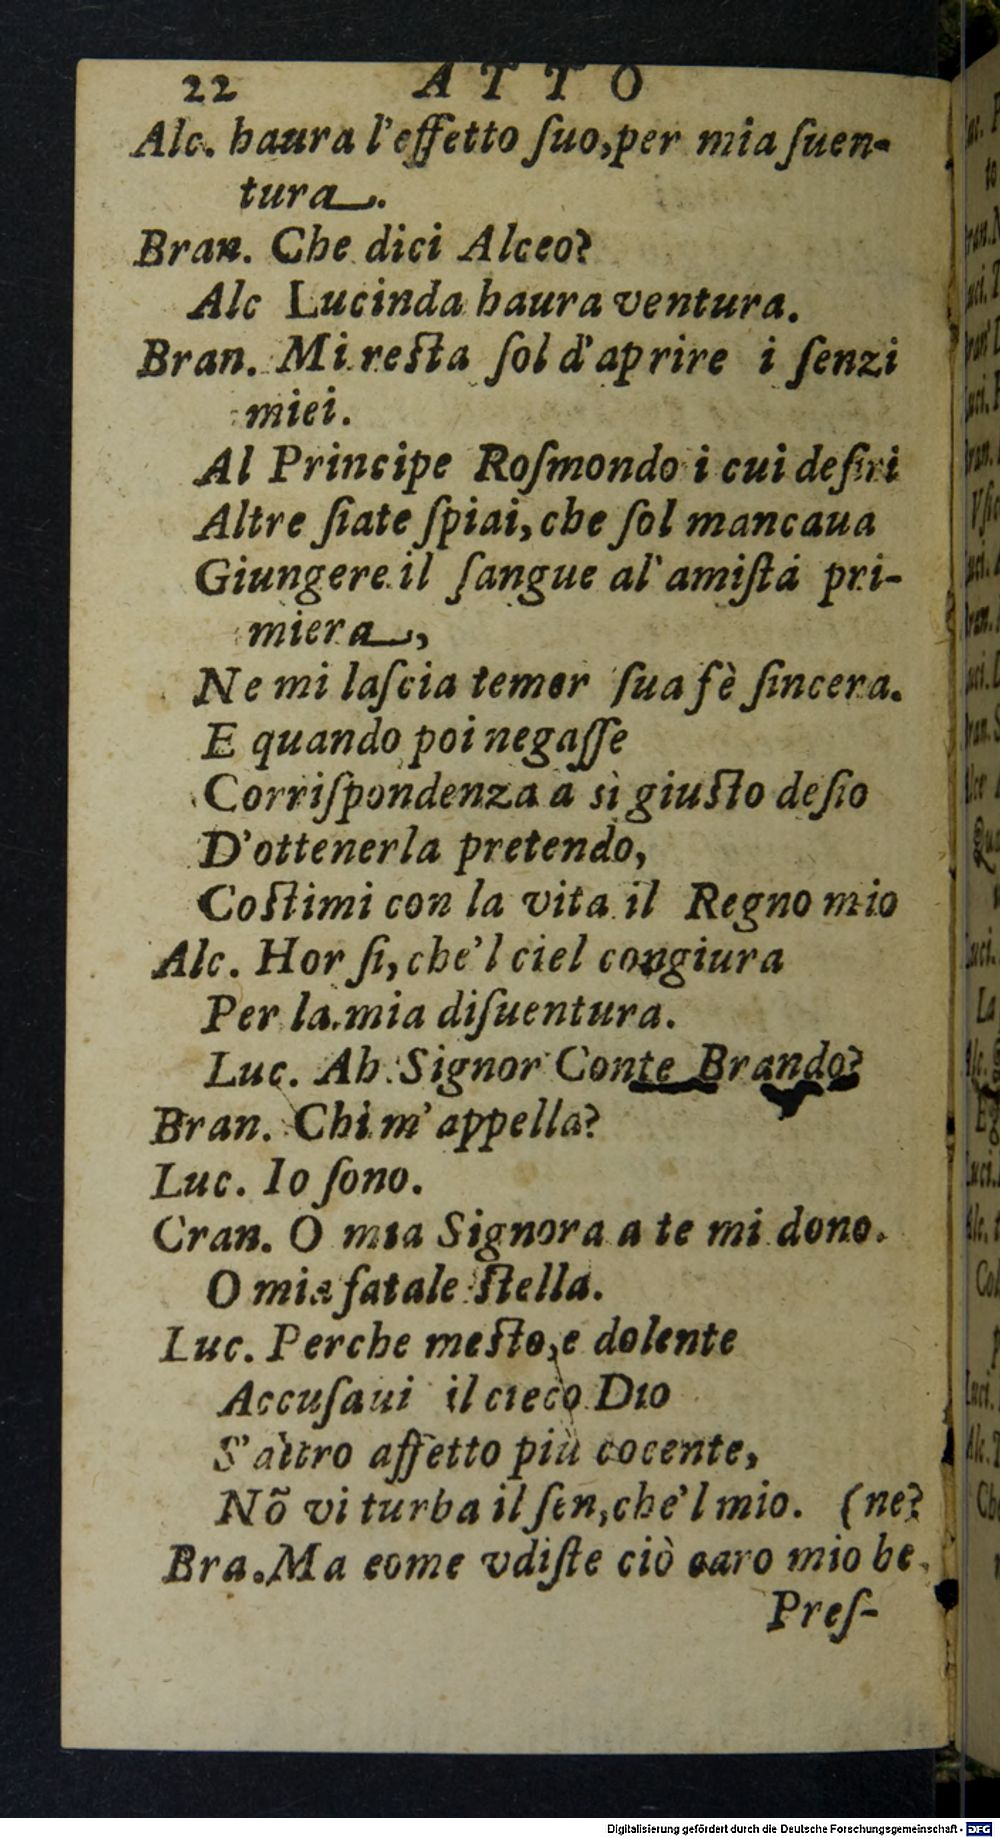 22 ATTO
Alc. haura l'effetto ſuo, per mia ſuen-
tura.
Bran. Che dici Alceo?
Alc Lucinda haura ventura.
Bran. Mi reſta ſol d'aprire i ſenzi
miei.
Al Principe Roſmondo i cui deſiri
Altre fiate ſpiai, che ſol mancaua
Giungere il ſangue al'amiſtà pri-
miera,
Ne mi laſcia temer ſua fè ſincera.
E quando poi negaſſe
Corriſpondenza a sì giuſto deſio
D'ottenerla pretendo,
Coſtimi con la vita il Regno mio
Alc. Hor ſi, che'l ciel congiura
Per la mia diſuentura.
Luc. Ah Signor Conte Brando?
Bran. Chi m'appella?
Luc. Io ſono.
Cran. O mia Signora a te mi dono.
O mia fatale ſtella.
Luc. Perche meſto, e dolente
Accuſaui il cieco Dio
S'altro affetto più cocente,
Nõ vi turba il ſen, che'l mio. (ne?
Bra. Ma eome vdiſte ciò caro mio be
Preſ-
Digitalisierung gefördert durch die Deutsche Forschungsgemeinschaft - DFG